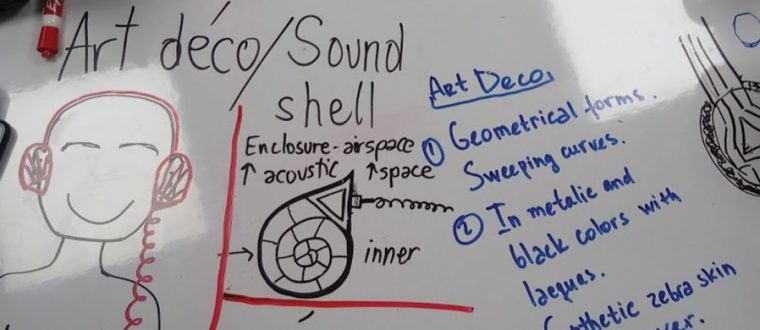 Art déco/Sound
shell
Enclosure-airspace
↑ acoustic ↑ space
inner
Art Deco.
① Geometrical forms.
Sweeping curves.
② In metalic and
black colors with
laequas.
zebra skin